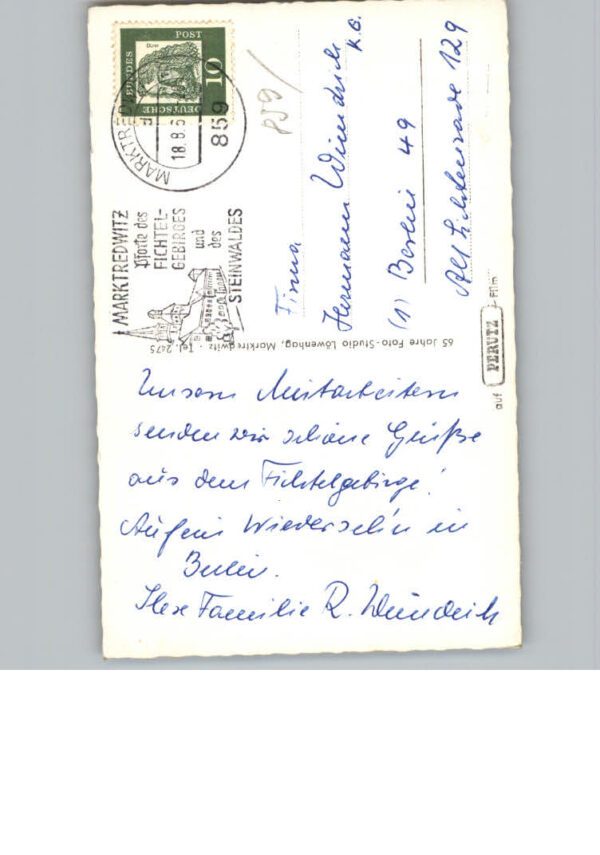 DEUTSCHE
BUNDES
POST
10
MARKTREDWITZ
18.8.6
859
859/
MARKTREDWITZ
Pforte des
FICHTEL-
GEBIRGES
und
des
STEINWALDES
Firma
Hermann Wündrich
K.G.
(1) Berlin 49
Alt Lichtenrade 129
65 Jahre Foto-Studio Löwenhag, Marktredwitz · Tel. 2475
auf PERUTZ Film
Unsern Mitarbeitern
senden wir schöne Grüße
aus dem Fichtelgebirge!
Auf ein Wiederseh'n in
Berlin.
Ihre Familie R. Wündrich